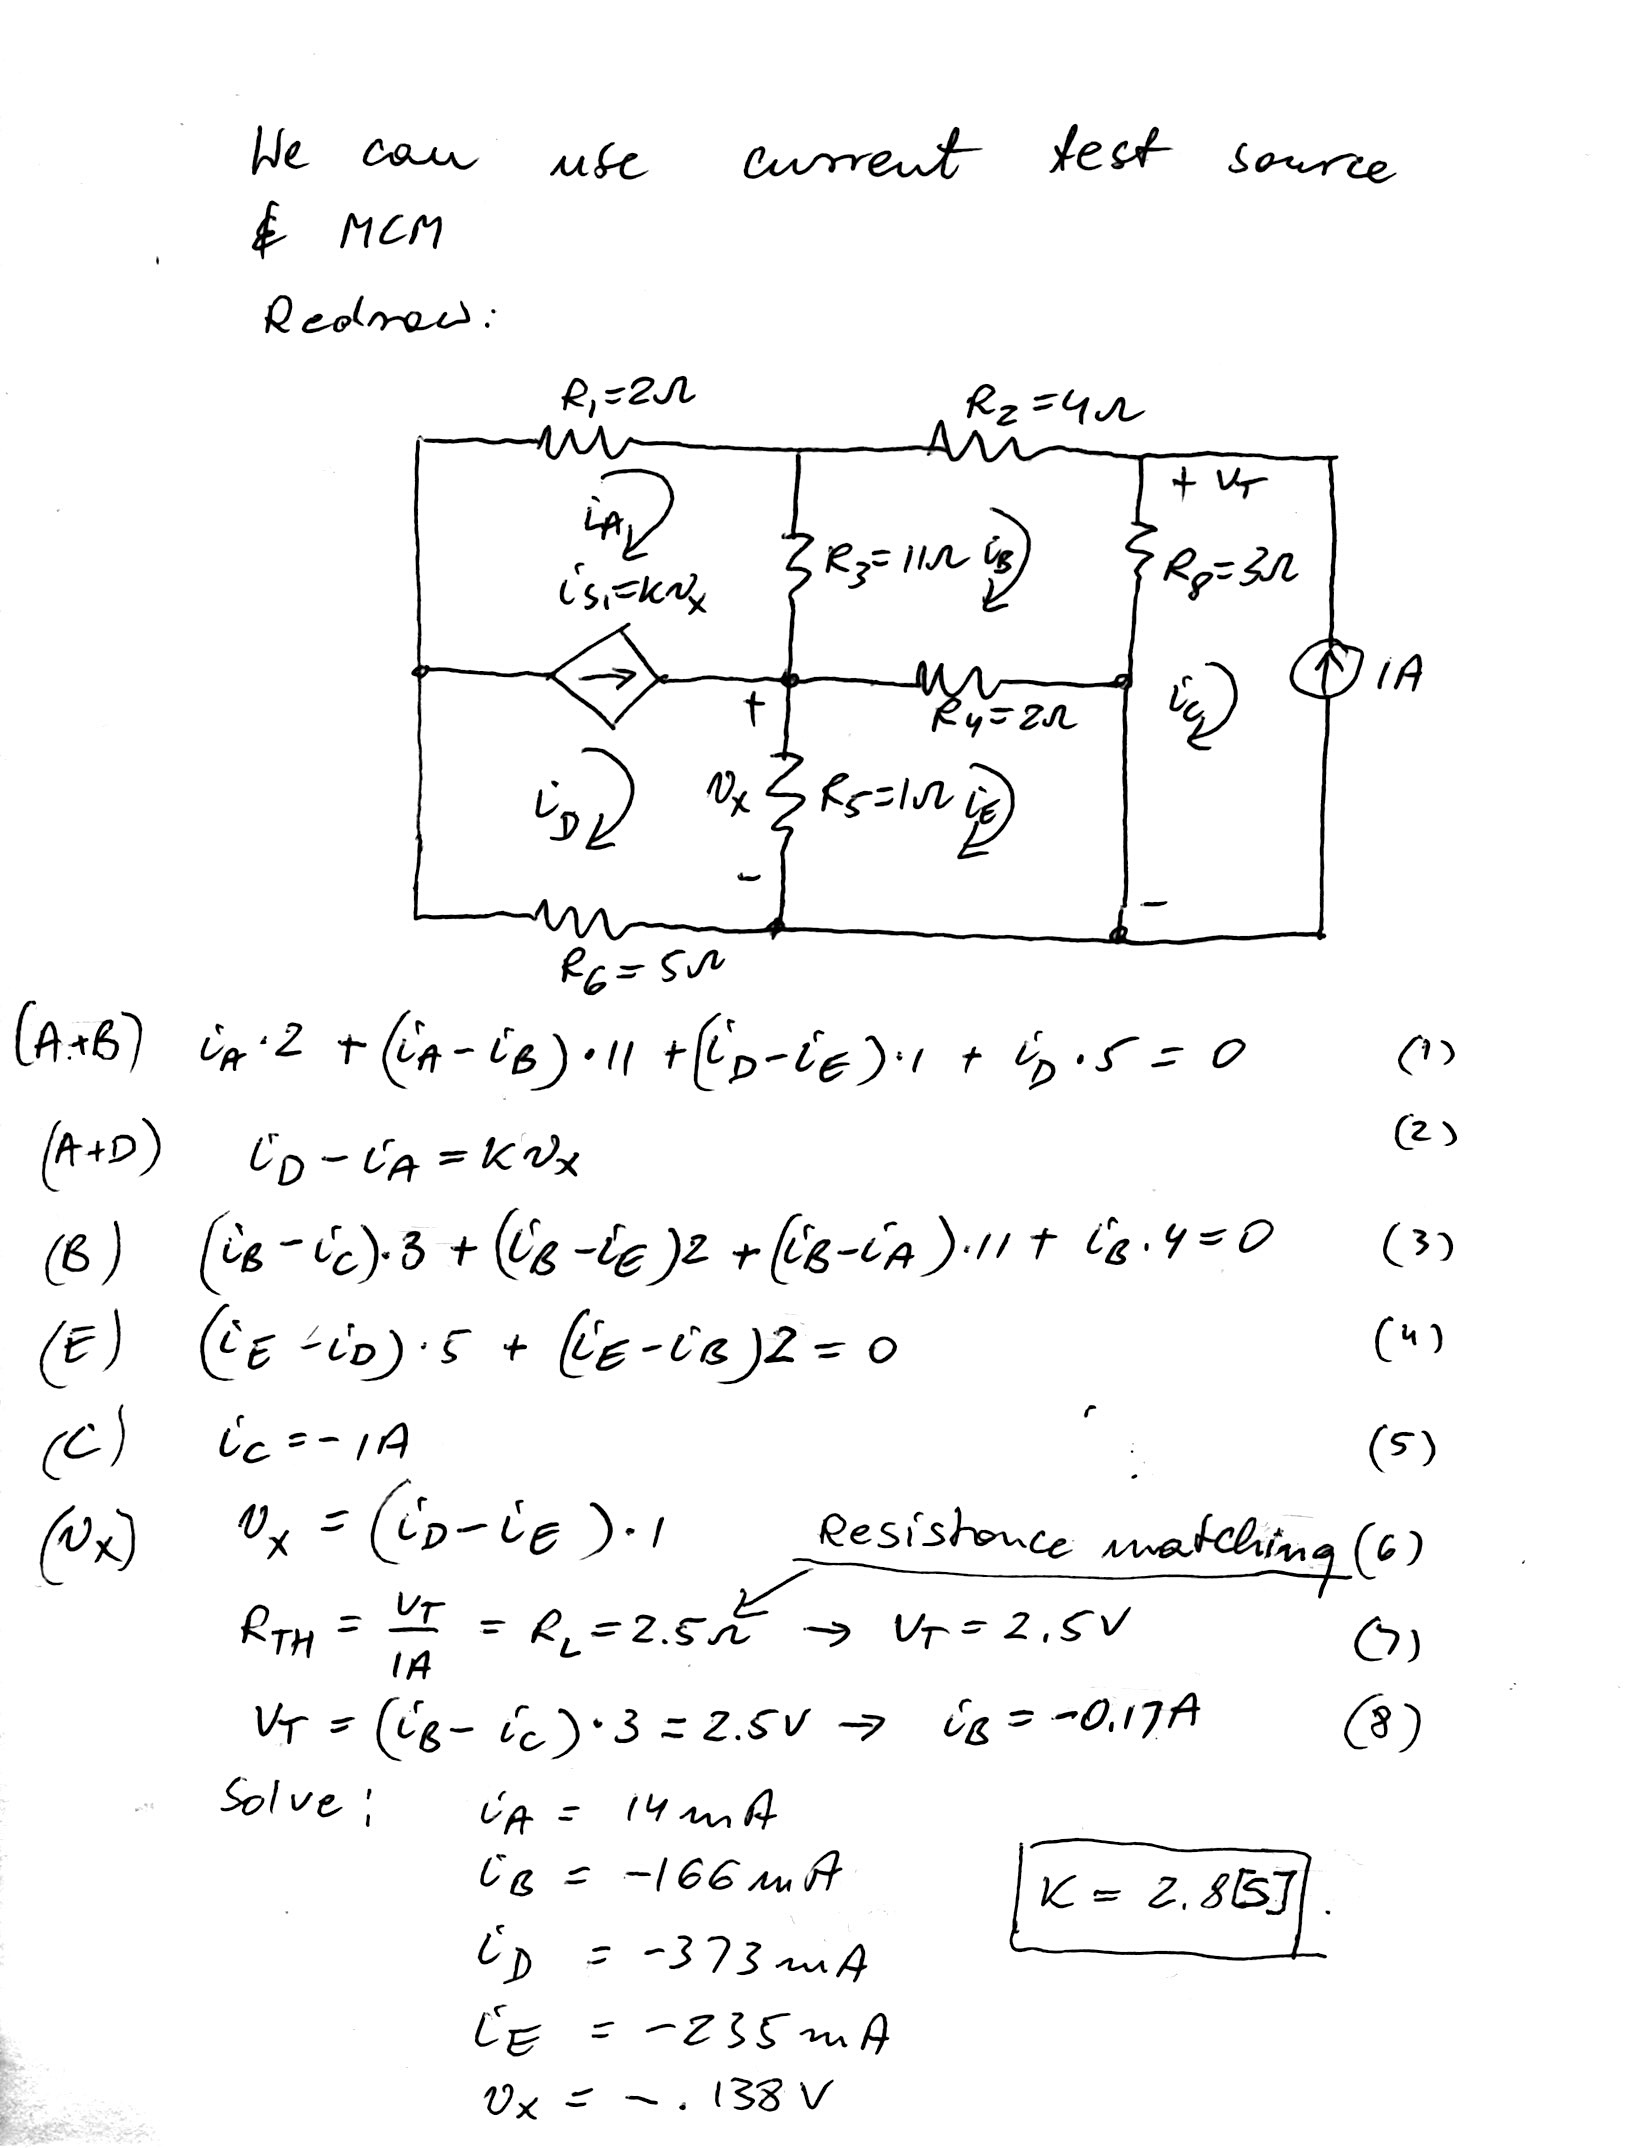 We can use current test source
& MCM
Redraw:
R₁=2Ω
R₂=4Ω
+ v_T
i_A
i_S₁=Kv_x
R₃=11Ω
i_B
R₈=3Ω
1A
+
R₄=2Ω
i_C
i_D
v_x
R₅=1Ω
i_E
-
-
R₆=5Ω
(A+B) i_A·2 + (i_A-i_B)·11 + (i_D-i_E)·1 + i_D·5 = 0 (1)
(A+D) i_D - i_A = Kv_x (2)
(B) (i_B-i_C)·3 + (i_B-i_E)2 + (i_B-i_A)·11 + i_B·4 = 0 (3)
(E) (i_E-i_D)·5 + (i_E-i_B)2 = 0 (4)
(C) i_C = -1A (5)
(v_x) v_x = (i_D-i_E)·1 Resistance matching (6)
R_TH = v_T/1A = R_L = 2.5Ω → v_T = 2.5V (7)
v_T = (i_B-i_C)·3 = 2.5V → i_B = -0.17A (8)
Solve: i_A = 14mA
i_B = -166mA
K = 2.8[S].
i_D = -373mA
i_E = -235mA
v_x = -.138V